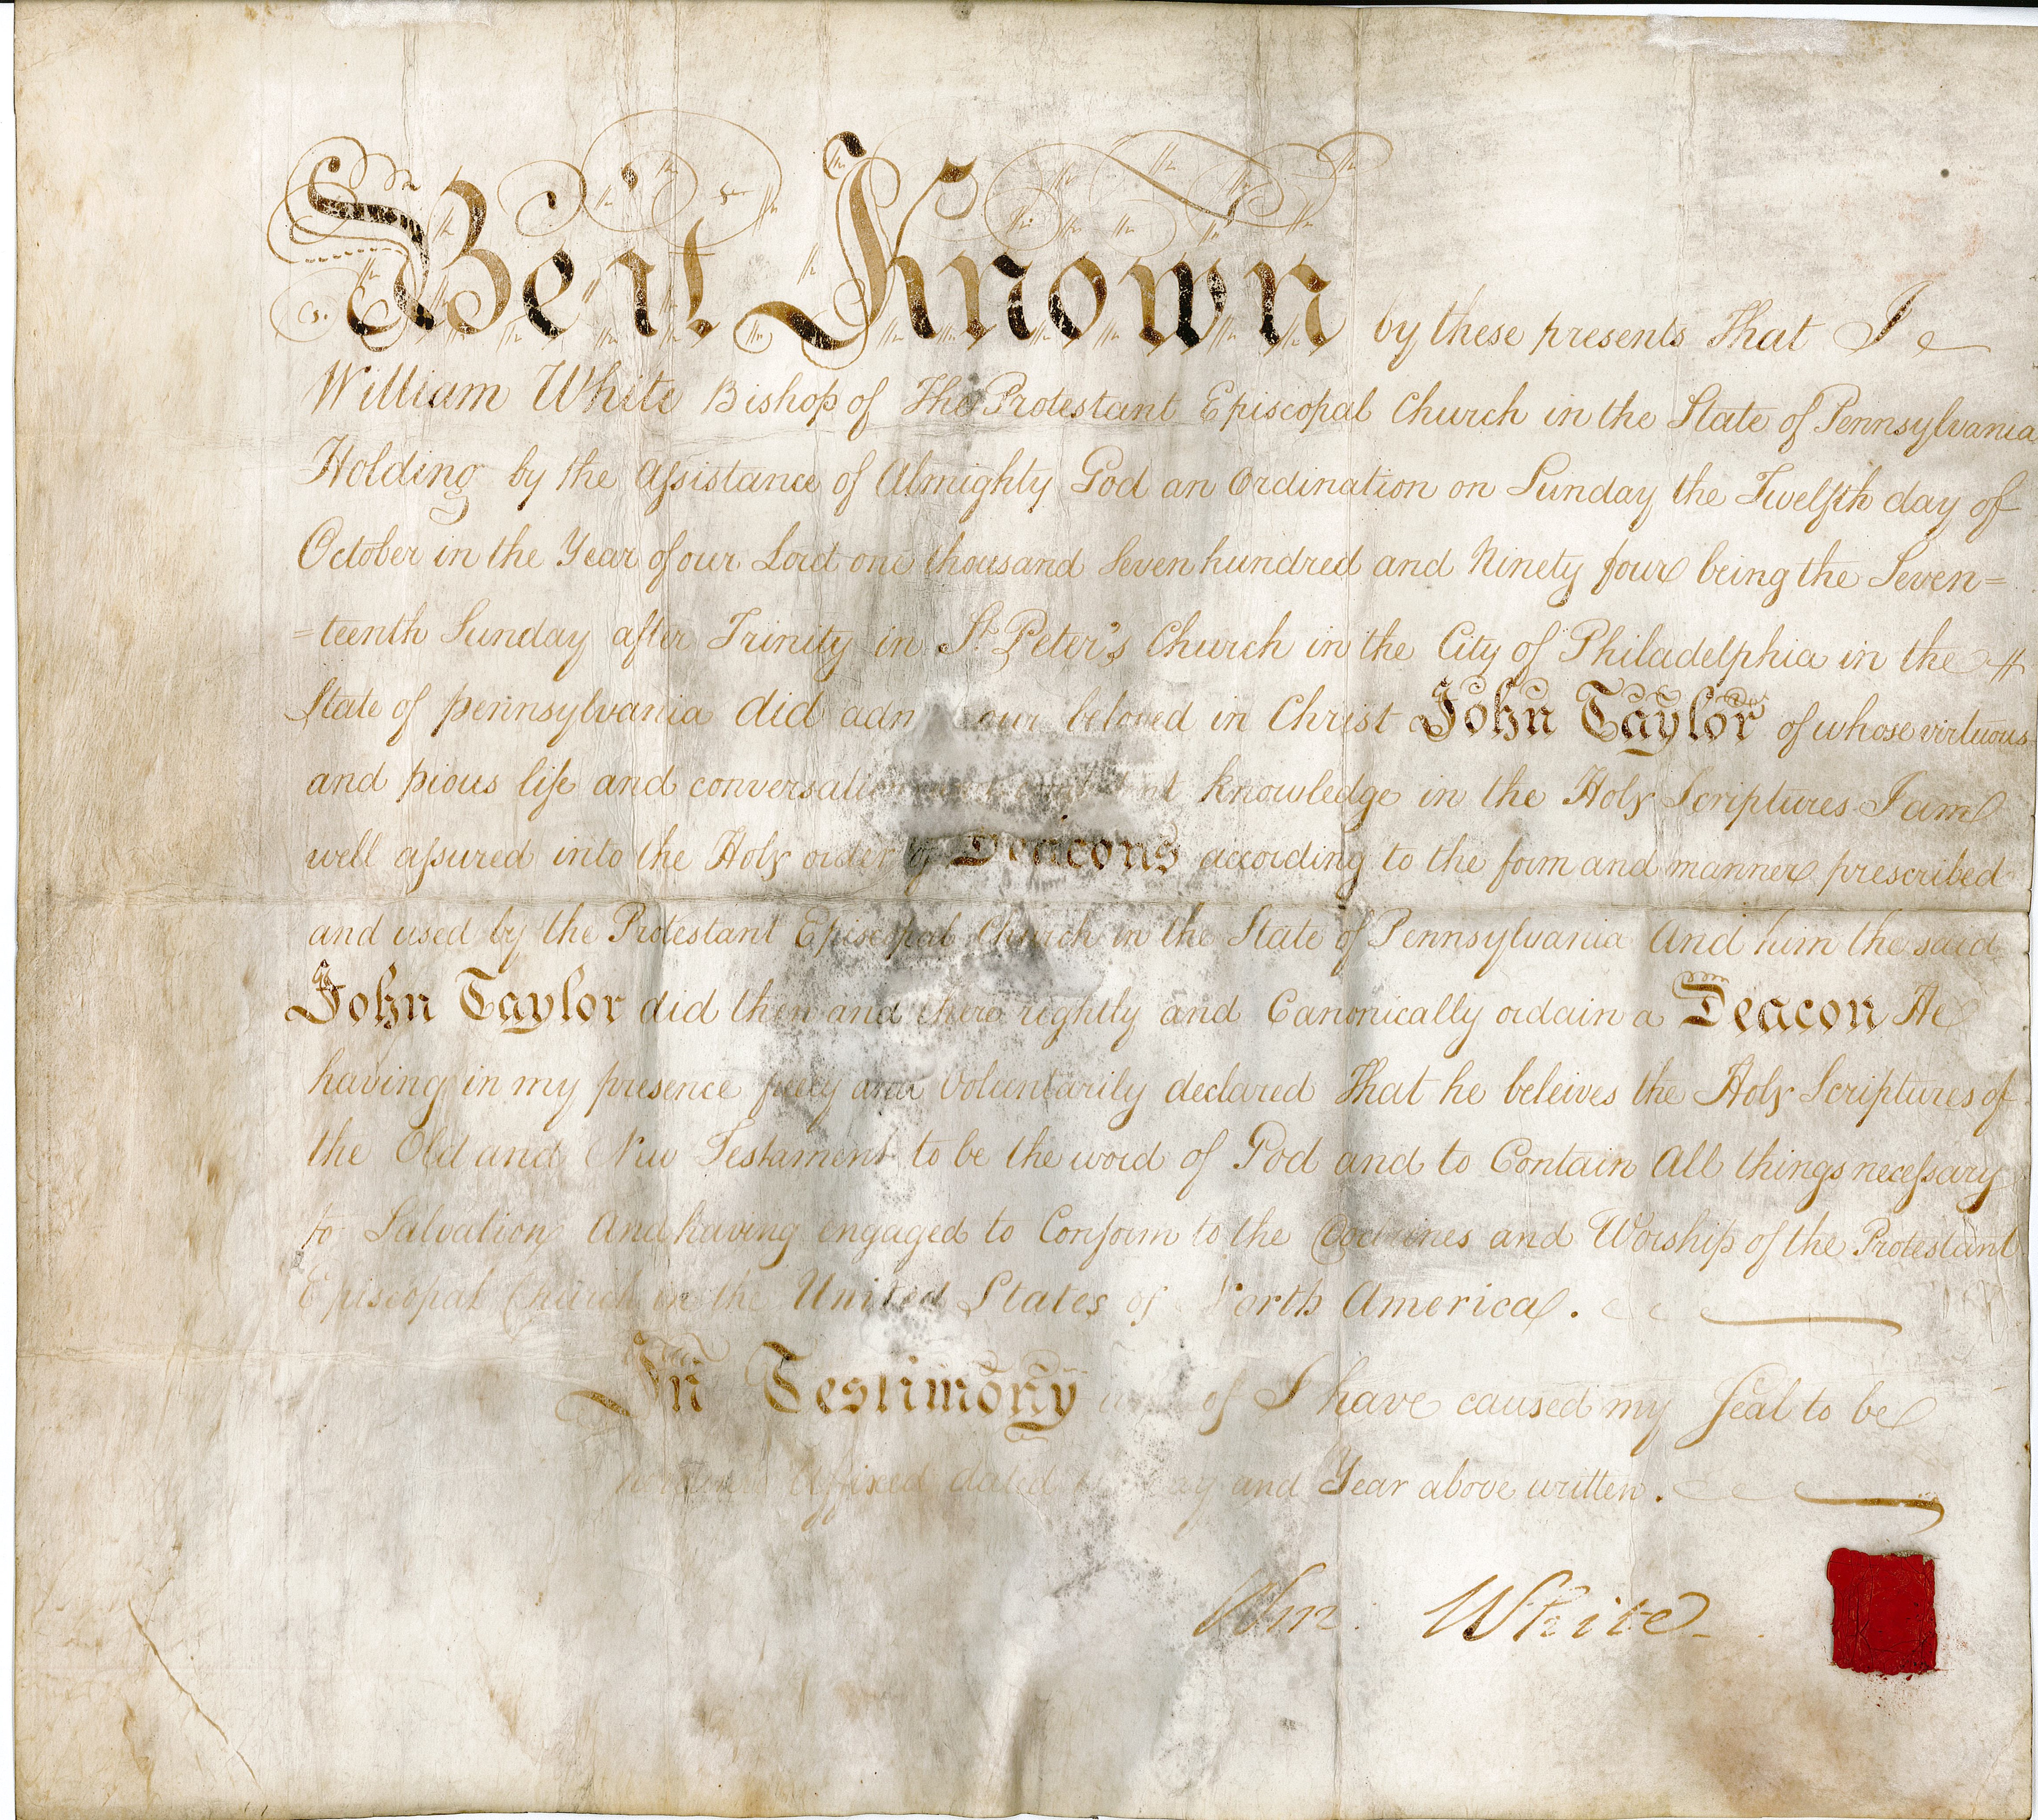 Be it Known by these presents That I
William White Bishop of The Protestant Episcopal Church in the State of Pennsylvania
Holding by the Assistance of Almighty God an Ordination on Sunday the Twelfth day of
October in the Year of our Lord one thousand Seven hundred and Ninety four being the Seven=
=teenth Sunday after Trinity in St. Peter's Church in the City of Philadelphia in the
State of pennsylvania did adm our beloved in Christ John Taylor of whose virtuous
and pious life and conversati knowledge in the Holy Scriptures I am
well assured into the Holy order of Deacons according to the form and manner prescribed
and used by the Protestant Episcopal Church in the State of Pennsylvania And him the said
John Taylor did then and there rightly and Canonically ordain a Deacon He
having in my presence freely and Voluntarily declared That he beleives the Holy Scriptures of
the Old and New Testament to be the word of God and to Contain All things necessary
to Salvation And having engaged to Conform to the Doctrines and Worship of the Protestant
Episcopal Church in the United States of North America.
In Testimony of I have caused my Seal to be
Affixed dated and Year above written.
Wm. White